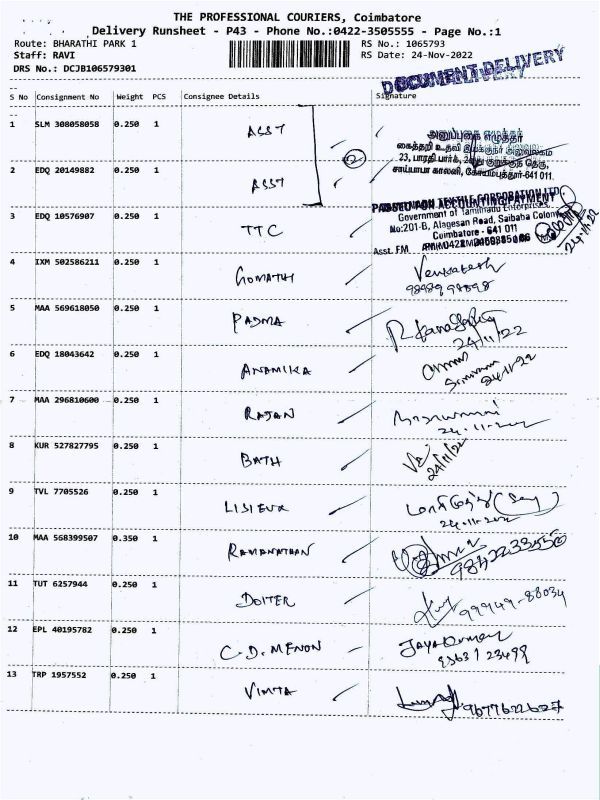 THE PROFESSIONAL COURIERS, Coimbatore
Delivery Runsheet - P43 - Phone No.:0422-3505555 - Page No.:1
Route: BHARATHI PARK 1 RS No.: 1065793
Staff: RAVI RS Date: 24-Nov-2022
DRS No.: DCJB106579301
DOCUMENT DELIVERY
S No Consignment No Weight PCS Consignee Details Signature
1 SLM 308058058 0.250 1 ASST
2
அனுப்புகை எழுத்தர்
கைத்தறி உதவி இயக்குநர் அலுவலகம்
23, பாரதி பார்க்,
சாய்பாபா காலனி, கோயமுத்தூர்-641 011.
2 EDQ 20149882 0.250 1 ASST
PASSED FOR ACCOUNTING/PAYMENT
TEXTILE CORPORATION LTD.
Government of Tamilnadu Enterprises
No:201-B, Alagesan Road, Saibaba Colony
Coimbatore - 641 011
Asst. FM
24.11.22
3 EDQ 10576907 0.250 1 TTC
4 IXM 502586211 0.250 1 GOMATHI Venkatesh
98989 98898
5 MAA 569618050 0.250 1 PADMA
24/11/22
6 EDQ 18043642 0.250 1 ANAMIKA
24-11-22
7 MAA 296810600 0.250 1 RAJAN
24-11-2022
8 KUR 527827795 0.250 1 BATH
24/11/22
9 TVL 7705526 0.250 1 LISIEUX
24-11-2022
10 MAA 568399507 0.350 1 RAMANATHAN
9842233550
11 TUT 6257944 0.250 1 DOITER 99949-88034
12 EPL 40195782 0.250 1 C.D. MENON
13 TRP 1957552 0.250 1 VIMTA 9677622627